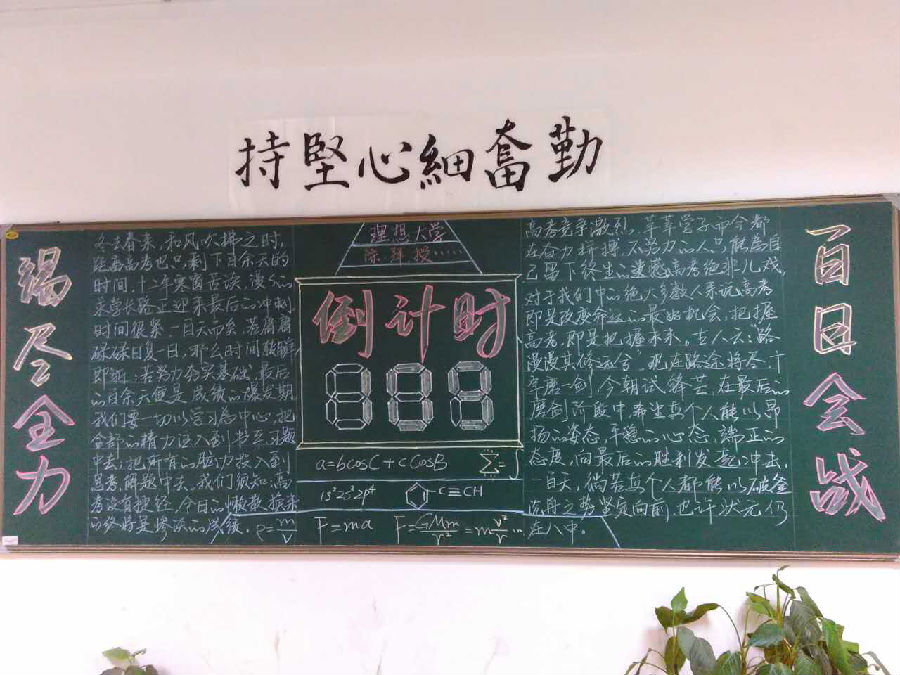 持坚心細奮勤
竭尽全力
冬去春来，和风吹拂之时，
距离高考也只剩下百余天的
时间，十二年寒窗苦读，漫久的
求学长路正迎来最后的冲刺
时间很紧一百天而至，若庸庸
碌碌日复一日，那么时间
即逝，若努力夯实基础，最后
的百余天便是成绩的爆发期
我们要一切以学习为中心，把
全部的精力迁入到书与习题
中去，把所有的脑力投入到
思考、解题中去，我们深知，高
考没有捷径，今日的 换来
的终将是 的成绩。ρ=m/V
理想大学
陈拜授……
倒计时
888
a=bcosC+cCosB
1s²2s²2p⁴
C≡CH
F=ma F=GMm/r²=mv²/r…
高考竞争激烈，莘莘学子而今都
在奋力拼搏，不努力的人只能为自
己留下终生的遗憾高考绝非儿戏，
对于我们中的绝大多数人来说高考
即是改变命运的最好机会，把握
高考，即是把握未来，古人云：“路
漫漫其修远兮”，现在路途将尽，十
年磨一剑，今朝试锋芒，在最后的
磨剑阶段中，希望每个人能以昂
扬的姿态，平稳的心态，端正的
态度，向最后的胜利发起冲击，
一百天，倘若每个人都能以破釜
沉舟之势坚定向前，也许状元仍
在八中。
百日会战